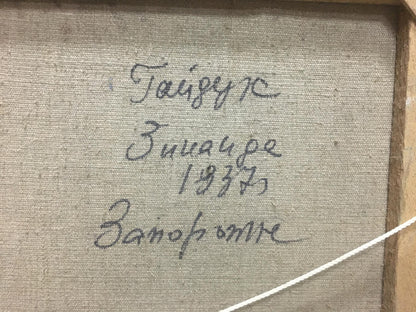 Гайдук
Зинаида
1937г
Запорожье